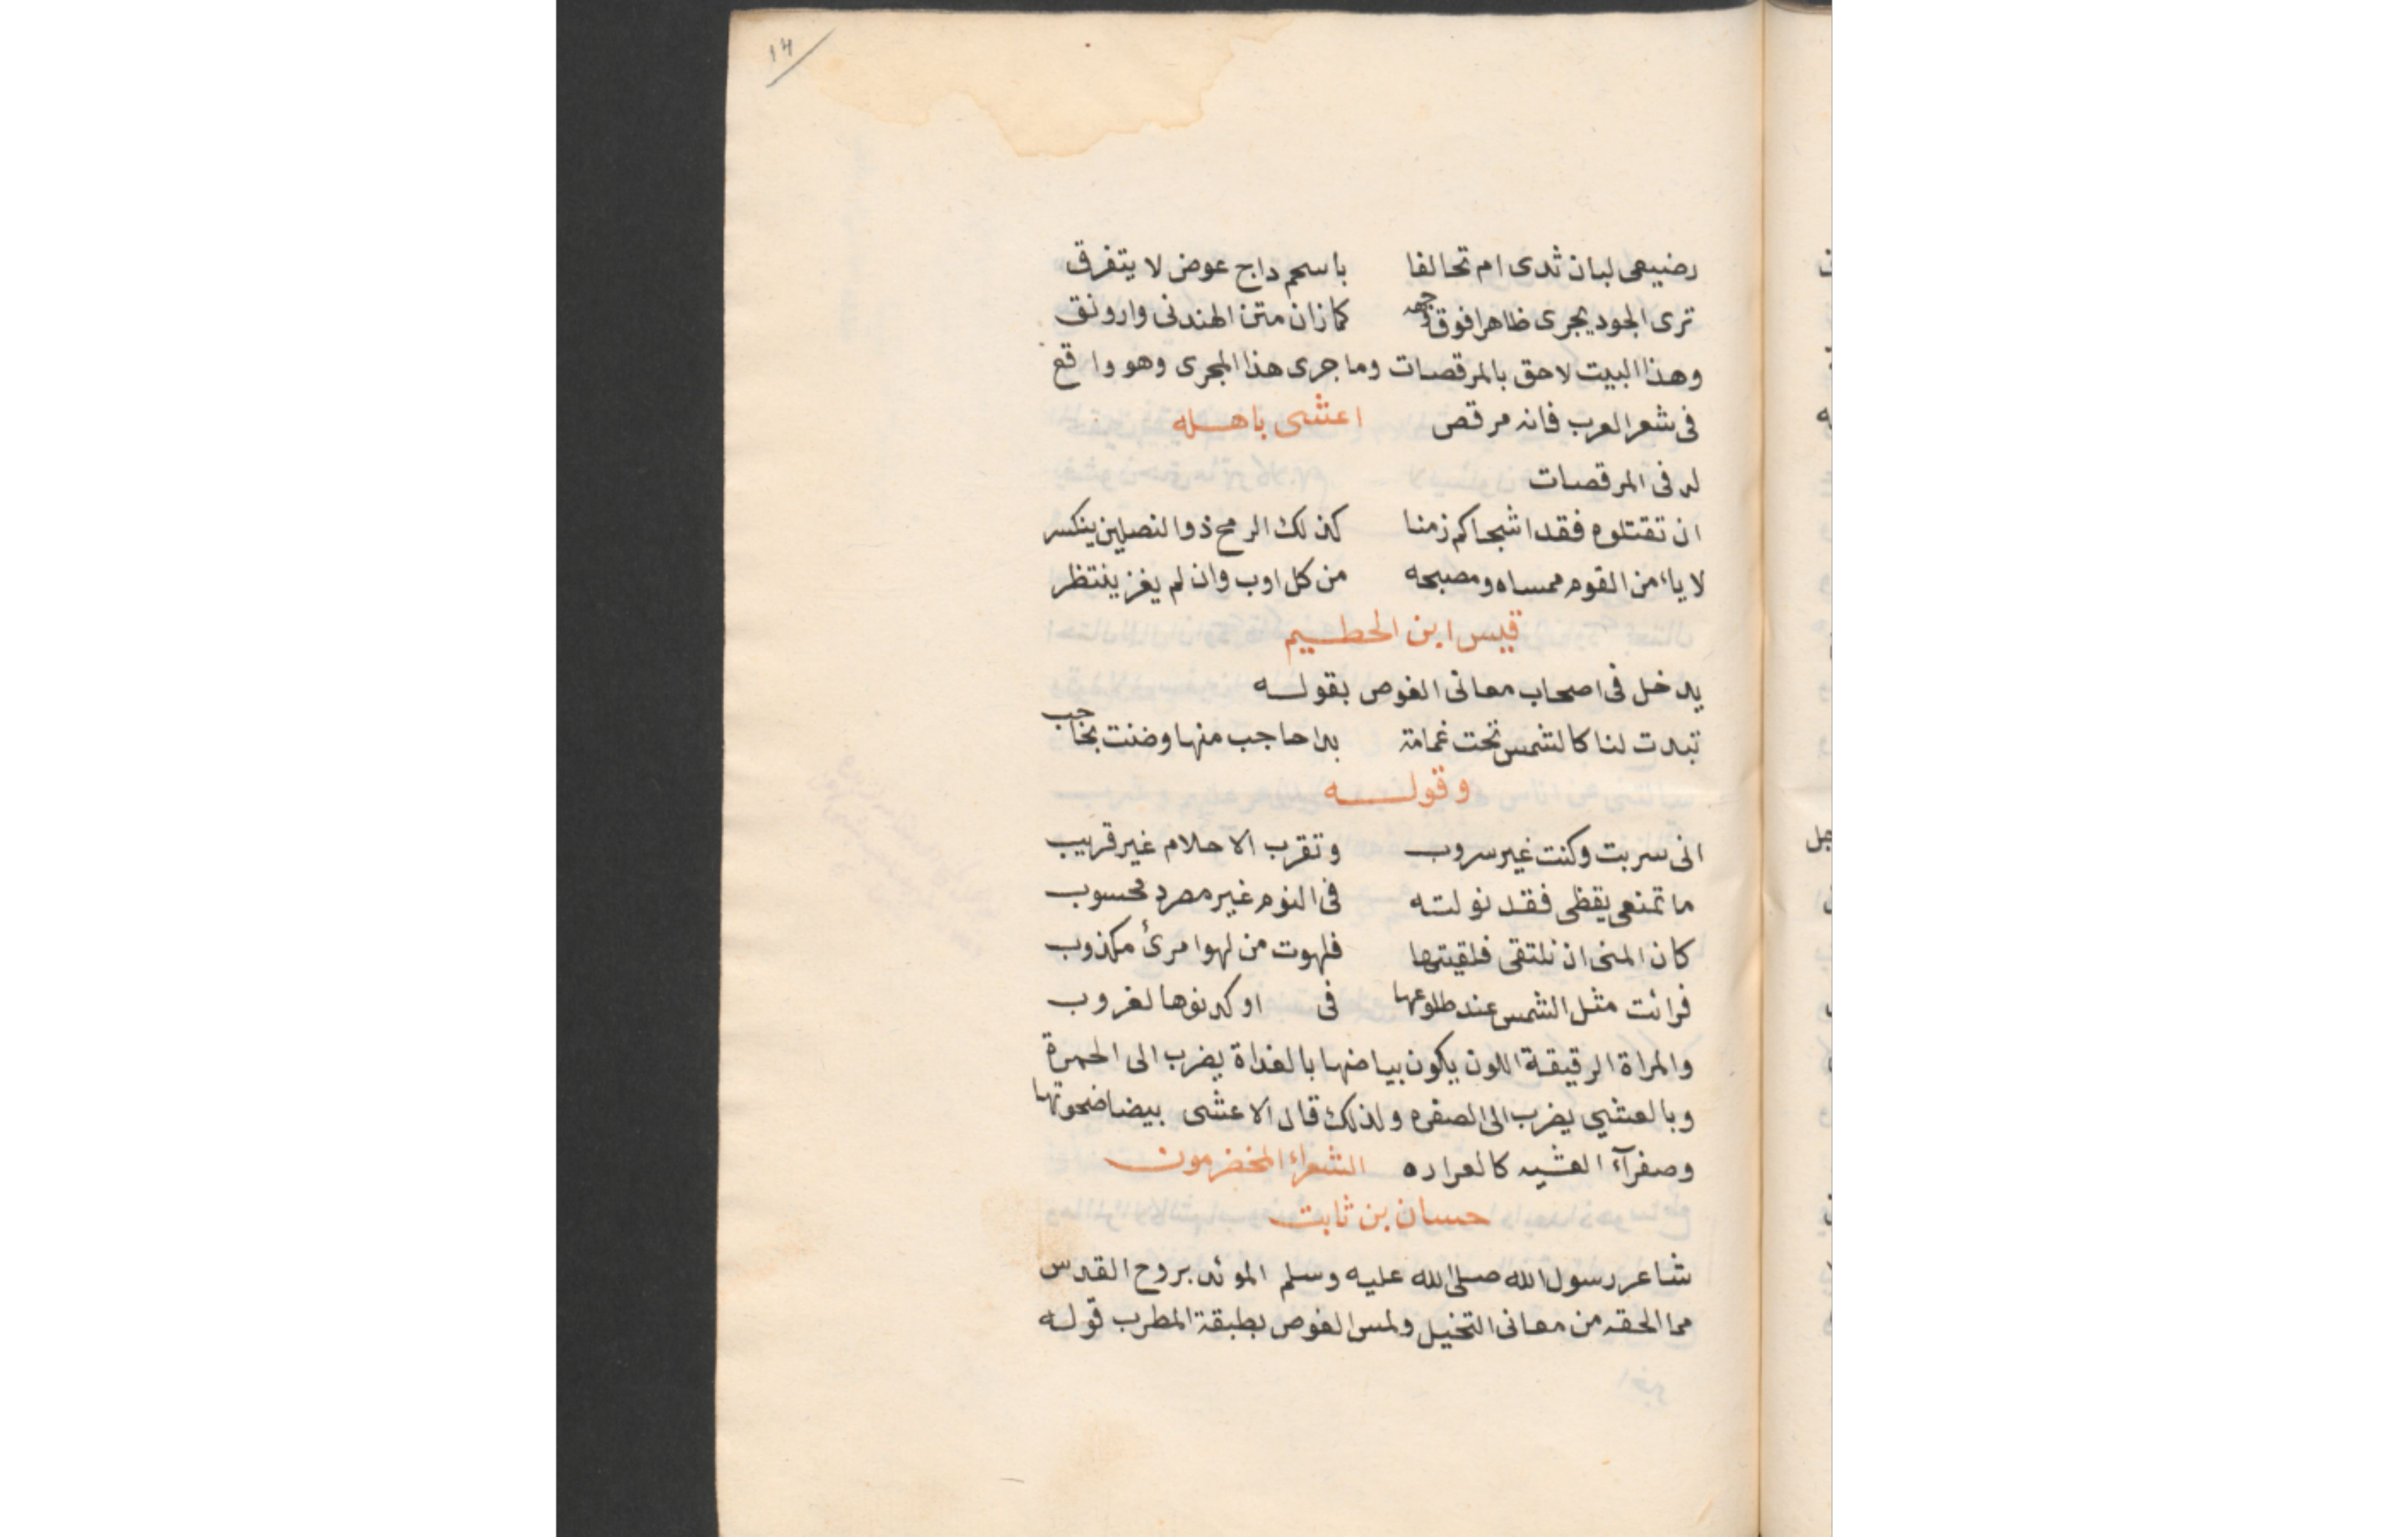 ١٣
رضيعى لبان ثدى ام تحالفا باسحم داج عوض لا يتفرق
ترى الجود يجرى ظاهرا فوق وجهه كما زان متن الهندنى وارونق
وهذا البيت لاحق بالمرقصات وما جرى هذا المجرى وهو واقع
فى شعر العرب فانه مرقص اعشى باهله
له فى المرقصات
ان تقتلوه فقد اشجاكم زمنا كذلك الرمح ذو النصلين ينكسر
لا ياءمن القوم ممساه ومصبحه من كل اوب وان لم يغز ينتظر
قيس ابن الحطيم
يدخل فى اصحاب معانى الغوص بقوله
تبدت لنا كالشمس تحت غمامة بدا حاجب منها وضنت بحاجب
وقوله
انى سربت وكنت غير سروب وتقرب الاحلام غير قريب
ما تمنعى يقظى فقد نولته فى النوم غير مصرد محسوب
كان المنى ان نلتقى فلقيتها فلهوت من لهوا مرئ مكذوب
فرائت مثل الشمس عند طلوعها فى او كدنوها لغروب
والمراة الرقيقة اللون يكون بياضها بالغداة يضرب الى الحمرة
وبالعشي يضرب الى الصفره ولذلك قال الاعشى بيضا ضحوتها
وصفرآء العشيه كالعراره الشعراء المخضرمون
حسان بن ثابت
شاعر رسول الله صلى الله عليه وسلم الموئد بروح القدس
مما الحقه من معانى التخيل ولمس الغوص بطبقة المطرب قوله